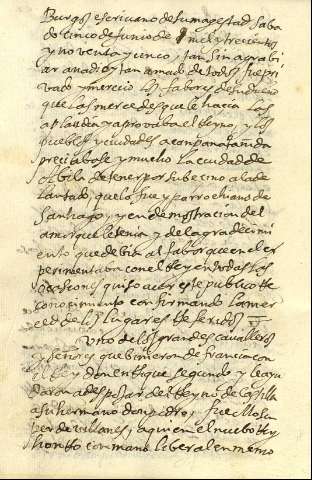 Burgos escrivano de su magestad saba
do cinco de Junio de mil y trecientos
y noventa y cinco, tan sin agrabi
ar a nadie y tan amado de todos fue pri
vado y merecio los fabores de su dueño
que las mercedes que le hacia los
aplaudia y aprovaba el Reyno, y los
pueblos y ciudades a conpania
preciabase y mucho la ciudad de
Abila de tener por su becino a la de
lantado, que lo fue y parrochiano de
Santiago, y en demostracion del
amor que le tenia y del agradecimi
ento que debia al fabor que en el ex
perimentaba con el Rey en todas los
ocasiones quiso acer este publico Re
conocimiento confirmando la mer
ced de los lugares Referidos
Uno de los grandes cavalleros
y señores que binieron de francia con
el Rey don enRique segundo y le ayu
daron a despojar del Reyno de Castilla
a su hermano don pedro, fue Mosen
per de villanes, a quien el nuebo Rey
honRro con mano liberal en Remo